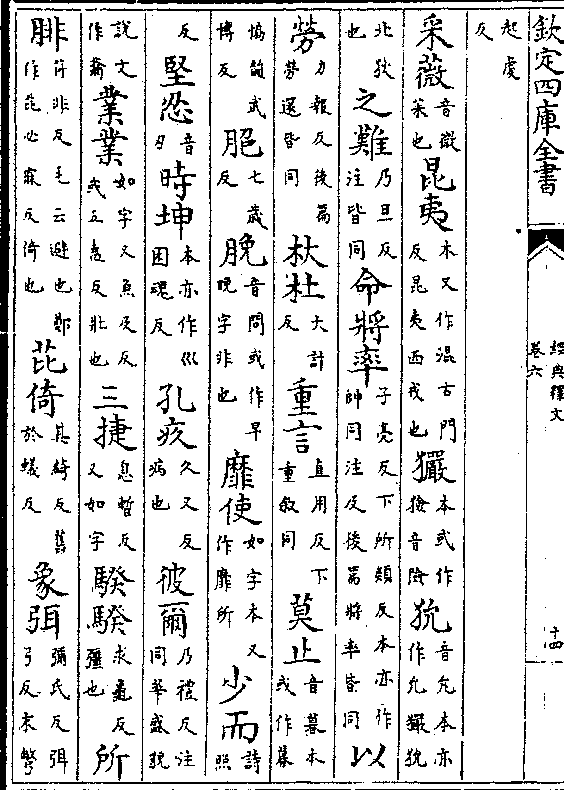 欽定四庫全書
經典釋文
卷六
十四
起虔
反
采薇音微菜也昆夷本又作混古門反昆夷西戎也玁本或作獫音險狁音允本亦作允玁狁
北狄也之難乃旦反注皆同命將率子亮反下所類反本亦作帥同注及後篇將率皆同以
勞力報反後篇勞還皆同杕杜大計反重言直用反下重敘同莫止音暮本或作暮
協韻武博反脆七歲反脕音問或作早晚字非也靡使如字本又作靡所少而詩照
反堅忍音刃時坤本亦作巛困魂反孔疚久又反病也彼爾乃禮反注同華盛貌
說文作薾業業如字又魚及反或五盍反壯也三捷息暫反又如字騤騤求龜反彊也所
腓符非反毛云避也鄭作芘必寐反倚也芘倚其綺反舊於蟻反象弭彌氏反弭弓反末彆